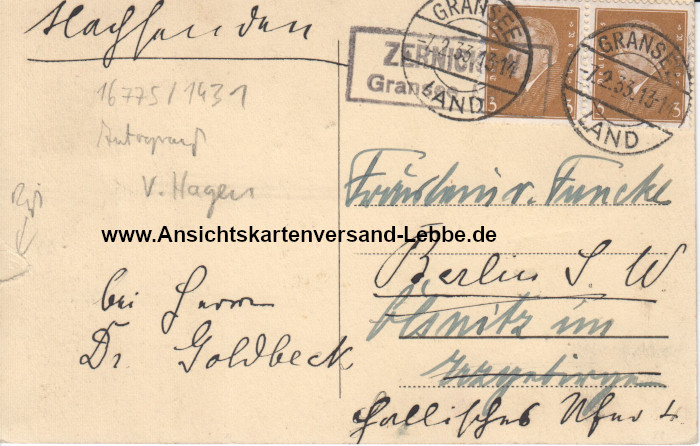 Nachsenden
GRANSEE
-7.2.33.13-14
LAND
GRANSEE
-7.2.33.13-14
LAND
ZERNIKOW
Gransee
3
3
16775/1431
Autograph
V. Hagen
Fräulein v. Funcke
www.Ansichtskartenversand-Lebbe.de
Berlin S. W
Ölsnitz im
Erzgebirge
Hallisches Ufer
bei Herrn
Dr. Goldbeck